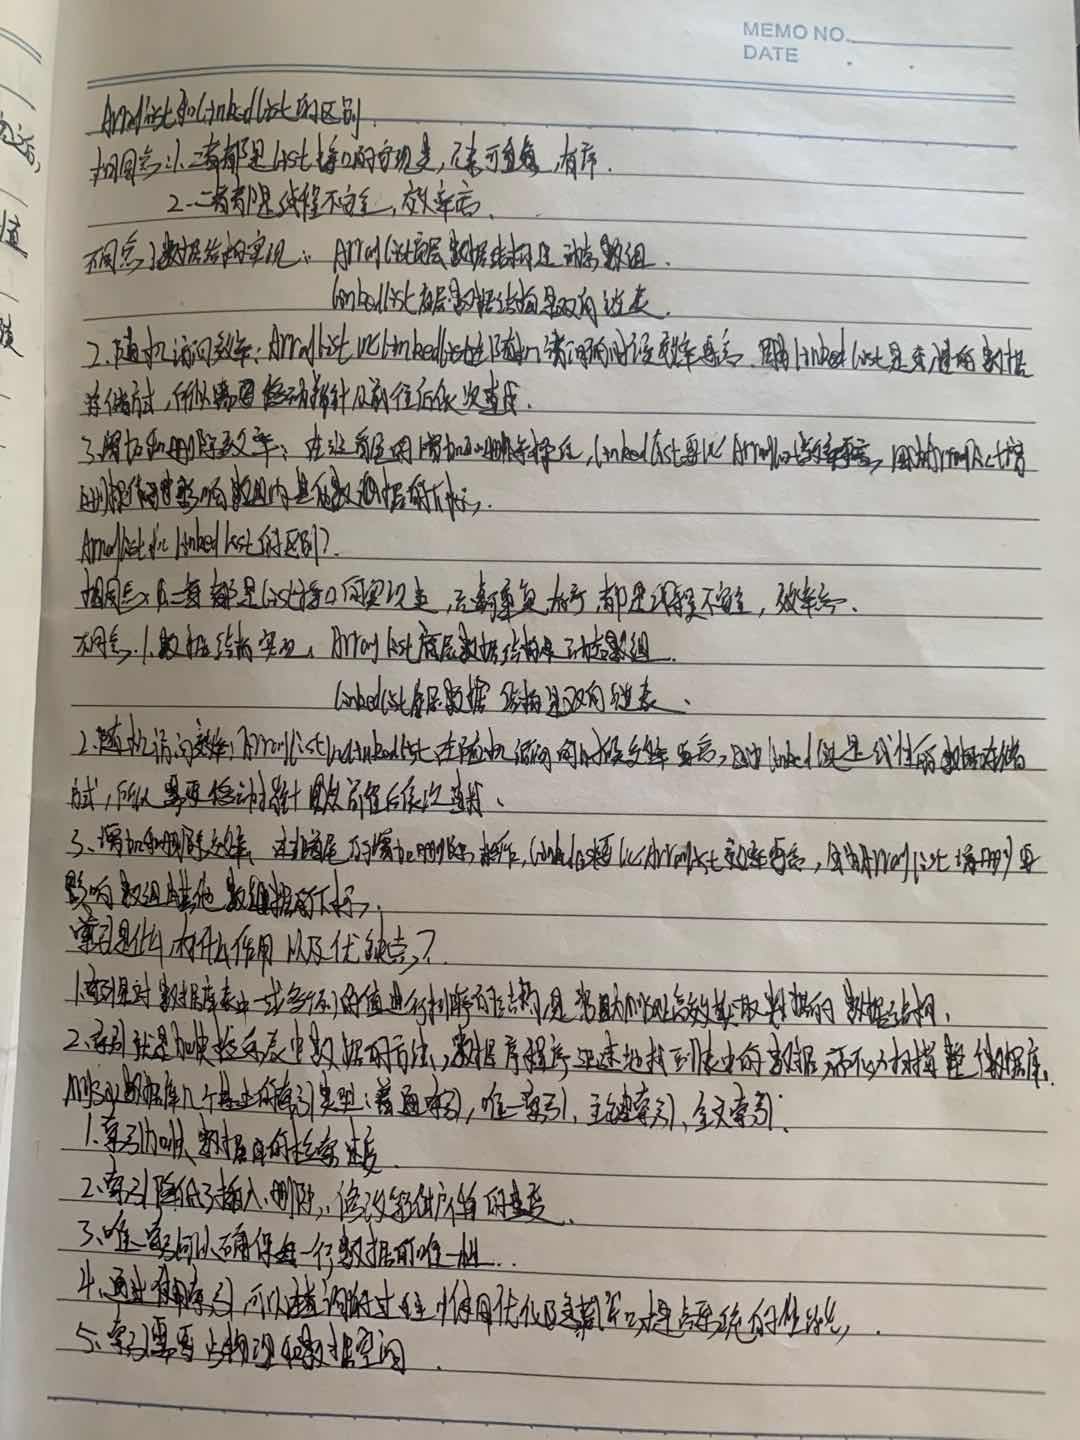 MEMO NO.
DATE
ArrayList和LinkedList的区别.
相同点:1.二者都是List接口的实现类,元素可重复,有序.
2.二者都是线程不安全,效率高.
不同点 1.数据结构实现: ArrayList底层数据结构是动态数组.
LinkedList底层数据结构是双向链表.
2.随机访问效率:ArrayList比LinkedList在随机访问的时候效率要高.因为LinkedList是线性的数据
存储方式,所以需要移动指针从前往后依次查找.
3.增加和删除效率:在非首尾的增加和删除操作,LinkedList要比ArrayList效率要高,因为ArrayList增
删操作要影响数组内其他数据的下标.
ArrayList和LinkedList的区别?
相同点:1.二者都是List接口的实现类,元素可重复,有序,都是线程不安全,效率高.
不同点.1.数据结构实现: ArrayList底层数据结构是动态数组.
LinkedList底层数据结构是双向链表.
2.随机访问效率:ArrayList比LinkedList在随机访问的时候效率要高,因为LinkedList是线性的数据存储
方式,所以需要移动指针从前往后依次查找.
3.增加和删除效率:在非首尾的增加和删除操作,LinkedList要比ArrayList效率要高,因为ArrayList增删要
影响数组内其他数据的下标.
索引是什么,有什么作用以及优缺点?
1.索引是对数据库表中一或多个列的值进行排序的结构,是帮助MySQL高效获取数据的数据结构.
2.索引就是加快检索表中数据的方法,数据库程序迅速地找到表中的数据,而不必扫描整个数据库.
MySQL数据库几个基本的索引类型:普通索引,唯一索引、主键索引、全文索引.
1.索引加快数据库的检索速度
2.索引降低了插入、删除、修改等维护任务的速度.
3.唯一索引可以确保每一行数据的唯一性.
4.通过使用索引,可以在查询的过程中使用优化隐藏器,提高系统的性能.
5.索引需要占物理和数据空间.